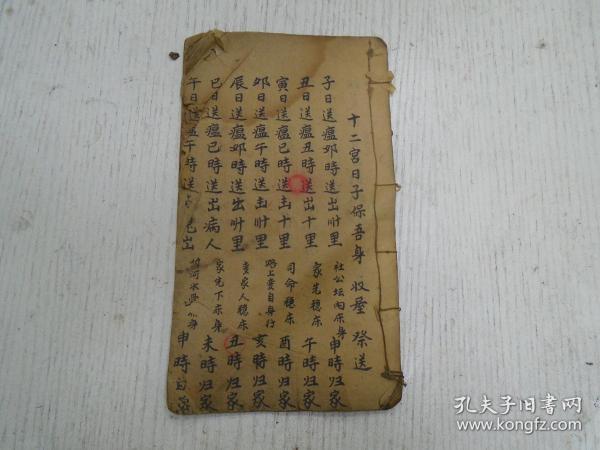 十二宫日子保吾身 收屋 祭送
子日送瘟卯時送出卅里 社公坛内床身 申時归家
丑日送瘟丑時送出十里 家先稳床 午時归家
寅日送瘟巳時送去十里 司命稳床 酉時归家
卯日送瘟午時送去卅里 路上变自身行 亥時归家
辰日送瘟卯時送出卅里 变家人稳床 丑時归家
巳日送瘟巳時送出病人 家先下床身 未時归家
午日送瘟午時送 出 河水 身 申時归家
孔夫子旧书网
www.kongfz.com